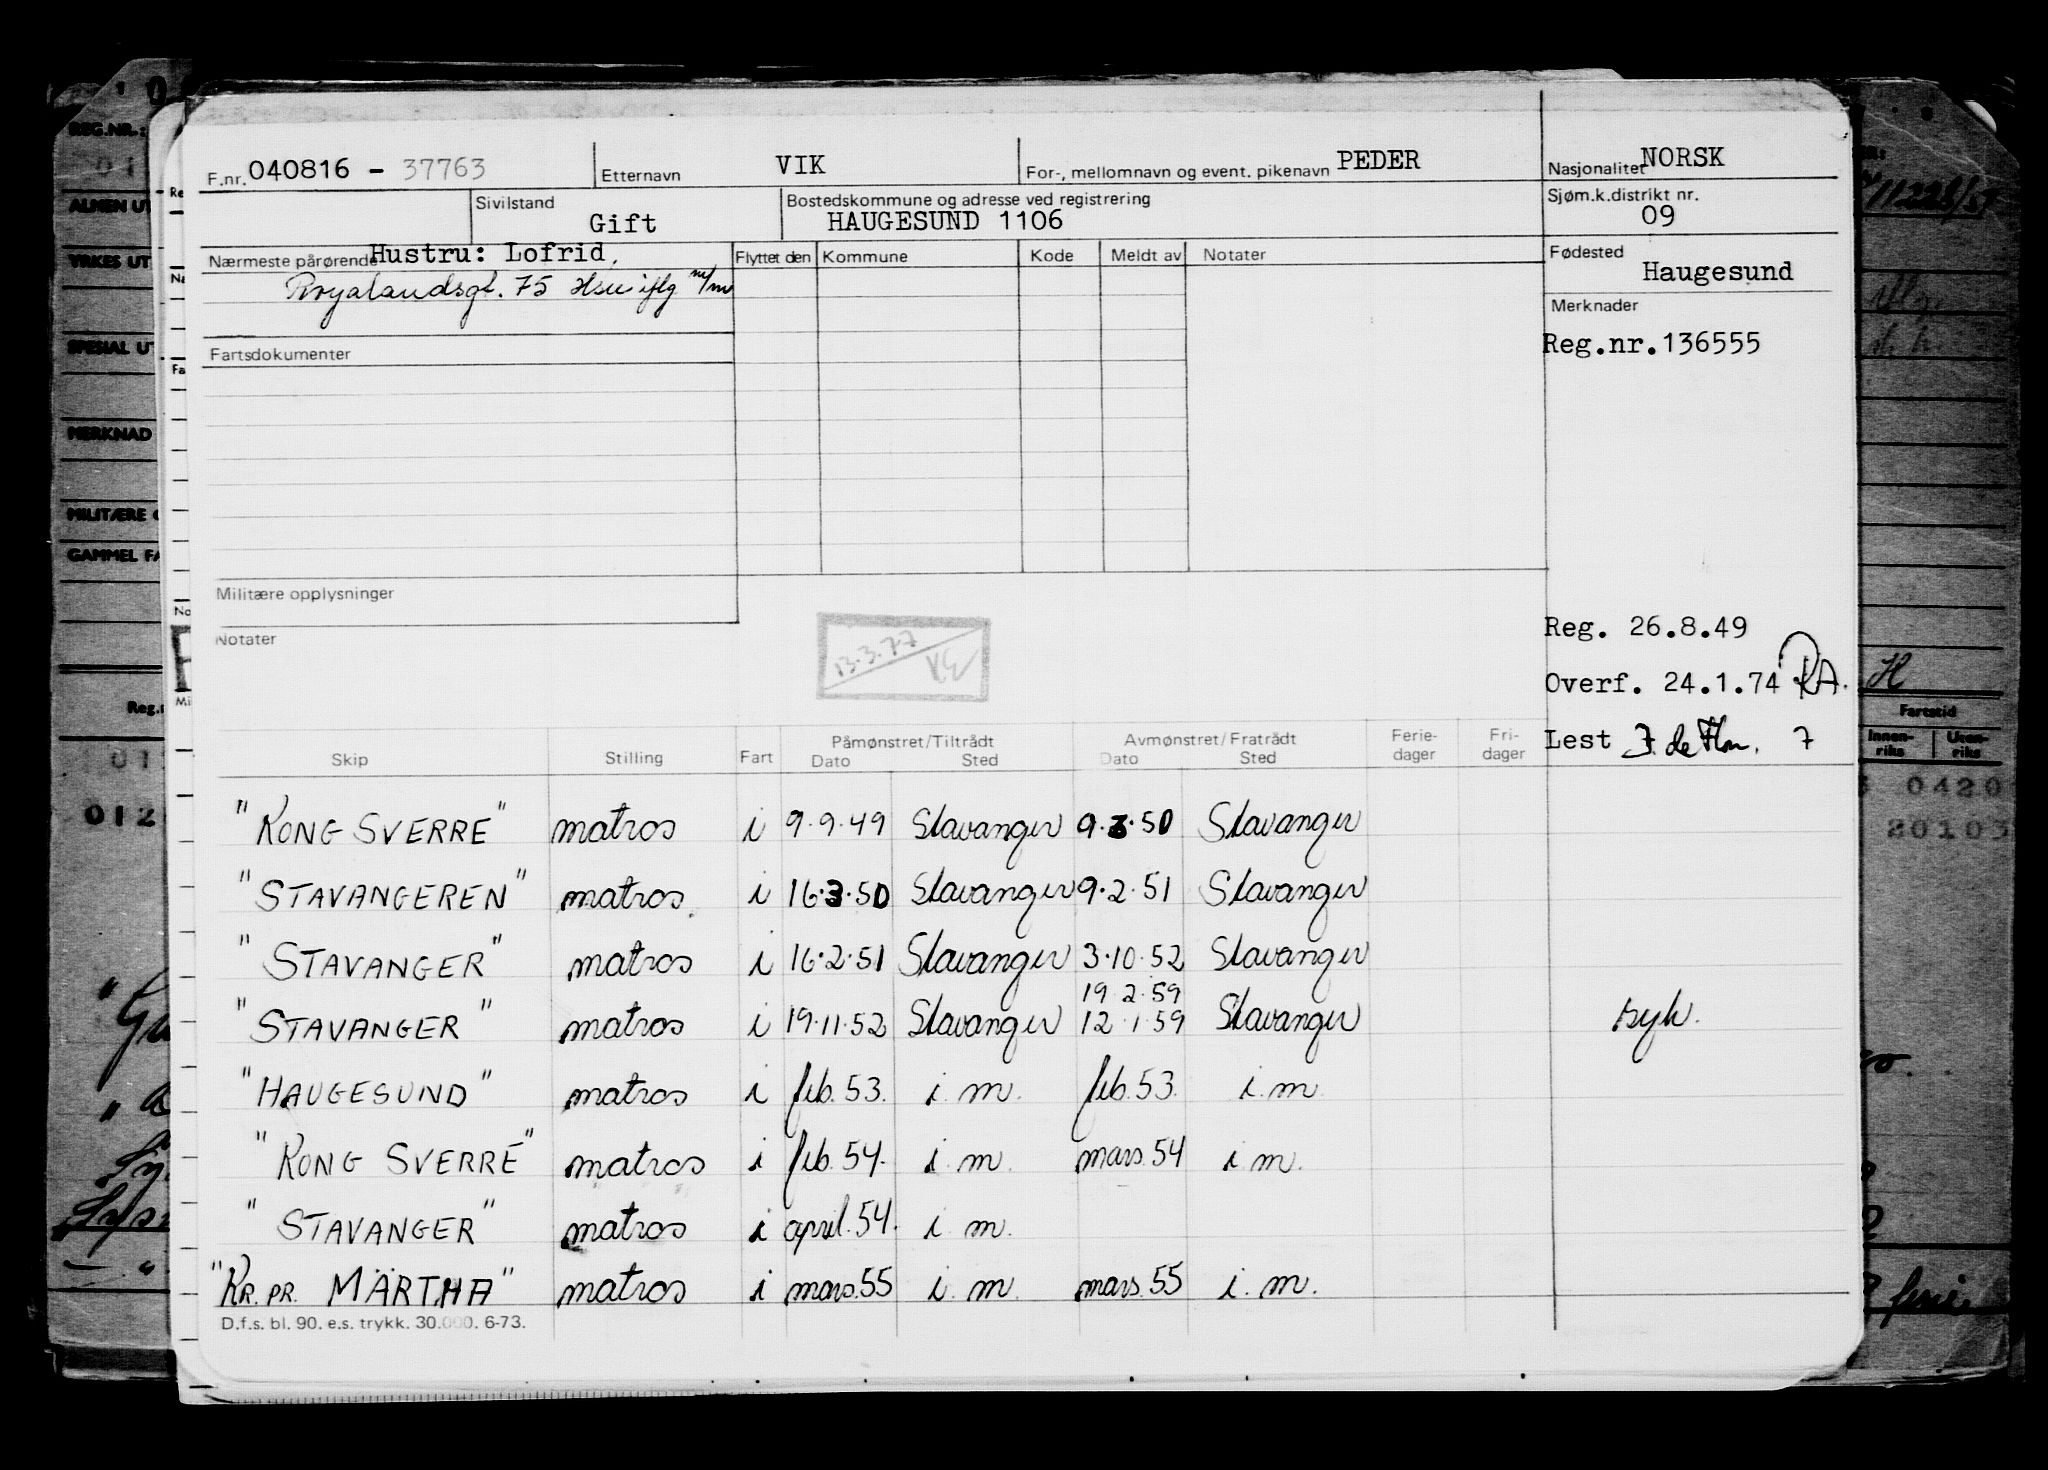 F.nr. 040816 - 37763 Etternavn VIK For-, mellomnavn og event. pikenavn PEDER Nasjonalitet NORSK
Sivilstand Gift Bostedskommune og adresse ved registrering HAUGESUND 1106 Sjøm.k.distrikt nr. 09
Nærmeste pårørende Hustru: Lofrid, Flyttet den Kommune Kode Meldt av Notater Fødested Haugesund
75 m/m
Merknader
Reg.nr.136555
Fartsdokumenter
Militære opplysninger
Notater
13.3.77
Reg. 26.8.49
Overf. 24.1.74 RA.
Lest 7
Skip Stilling Fart Påmønstret/Tiltrådt Dato Sted Avmønstret/Fratrådt Dato Sted Ferie-dager Fri-dager
"KONG SVERRE" matros i 9.9.49 Stavanger 9.3.50 Stavanger
"STAVANGEREN" matros. i 16.3.50 Stavanger 9.2.51 Stavanger
"STAVANGER" matros i 16.2.51 Stavanger 3.10.52 Stavanger
19.2.59
"STAVANGER" matros i 19.11.52 Stavanger 12.1.59 Stavanger syk.
"HAUGESUND" matros i feb.53. i.m. feb.53. i.m.
"KONG SVERRE" matros i feb.54. i.m. mars.54 i.m.
"STAVANGER" matros i april.54. i.m.
"KR. PR. MÄRTHA" matros i mars.55 i.m. mars.55 i.m.
D.f.s. bl. 90. e.s. trykk. 30.000. 6-73.
REG.NR.:
ALMEN UT
YRKES UT
SPESIAL UT
MERKNAD
MILITÆRE
GAMMEL FA
Fartstid
Innen-riks Uten-riks
0420
20103
012